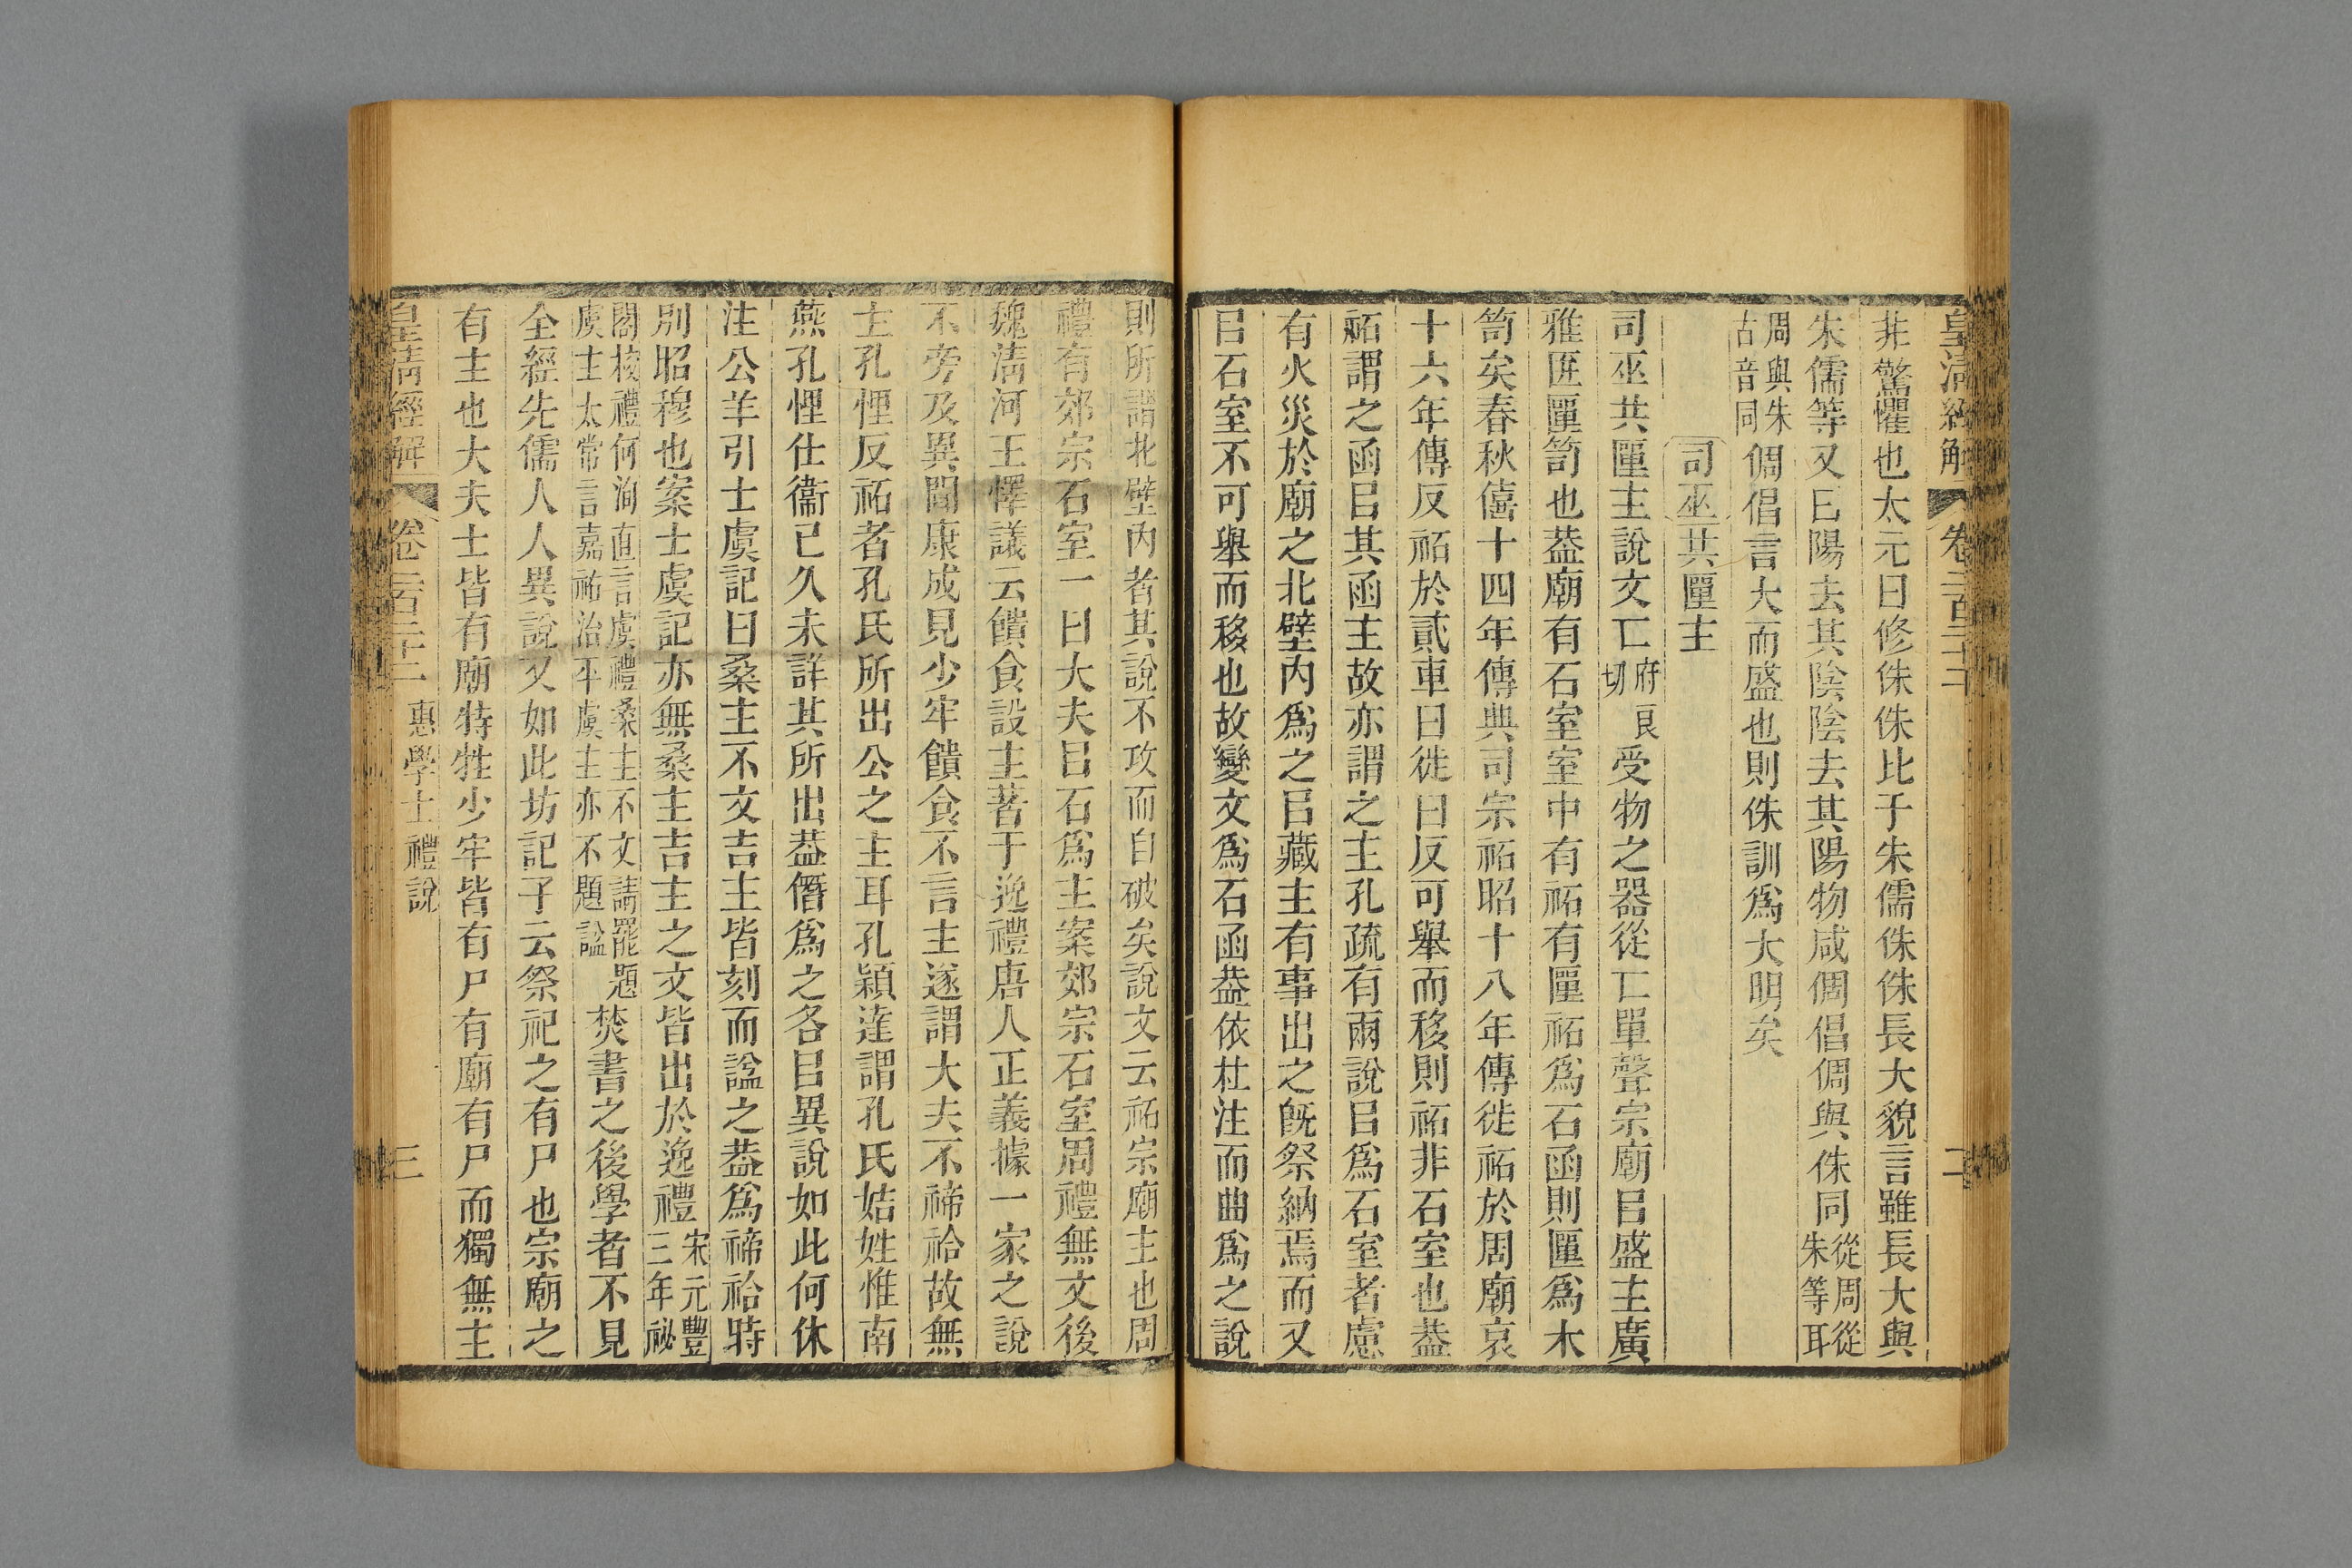 皇清經解 卷二百二十二 二
非驚懼也太元曰修侏侏比于朱儒侏侏長大貌言雖長大與
朱儒等又曰陽去其陰陰去其陽物咸倜倡倜與侏同從周從朱等耳
周與朱古音同倜倡言大而盛也則侏訓爲大明矣
司巫共匰主
司巫共匰主說文匚府良切受物之器從匚單聲宗廟㠯盛主廣
雅匩匰笥也葢廟有石室室中有祏有匰祏爲石函則匰爲木
笥矣春秋僖十四年傳典司宗祏昭十八年傳徙祏於周廟哀
十六年傳反祏於貳車曰徙曰反可舉而移則祏非石室也葢
祏謂之函㠯其函主故亦謂之主孔疏有兩說㠯爲石室者慮
有火災於廟之北壁內爲之㠯藏主有事出之旣祭納焉而又
㠯石室不可舉而移也故變文爲石函葢依杜注而曲爲之說
則所謂北壁內者其說不攻而自破矣說文云祏宗廟主也周
禮有郊宗石室一曰大夫㠯石爲主案郊宗石室周禮無文後
魏淸河王懌議云饋食設主著于逸禮唐人正義據一家之說
不旁及異聞康成見少牢饋食不言主遂謂大夫不禘祫故無
主孔悝反祏者孔氏所出公之主耳孔穎達謂孔氏姞姓惟南
燕孔悝仕衞已久未詳其所出葢僭爲之各㠯異說如此何休
注公羊引士虞記曰桑主不文吉主皆刻而諡之葢爲禘祫時
別昭穆也案士虞記亦無桑主吉主之文皆出於逸禮宋元豐三年祕
閣校禮何洵直言虞禮桑主不文請罷題虞主太常言嘉祐治平虞主亦不題諡焚書之後學者不見
全經先儒人人異說又如此坊記子云祭祀之有尸也宗廟之
有主也大夫士皆有廟特牲少牢皆有尸有廟有尸而獨無主
皇清經解 卷二百二十二 惠學士禮說 三